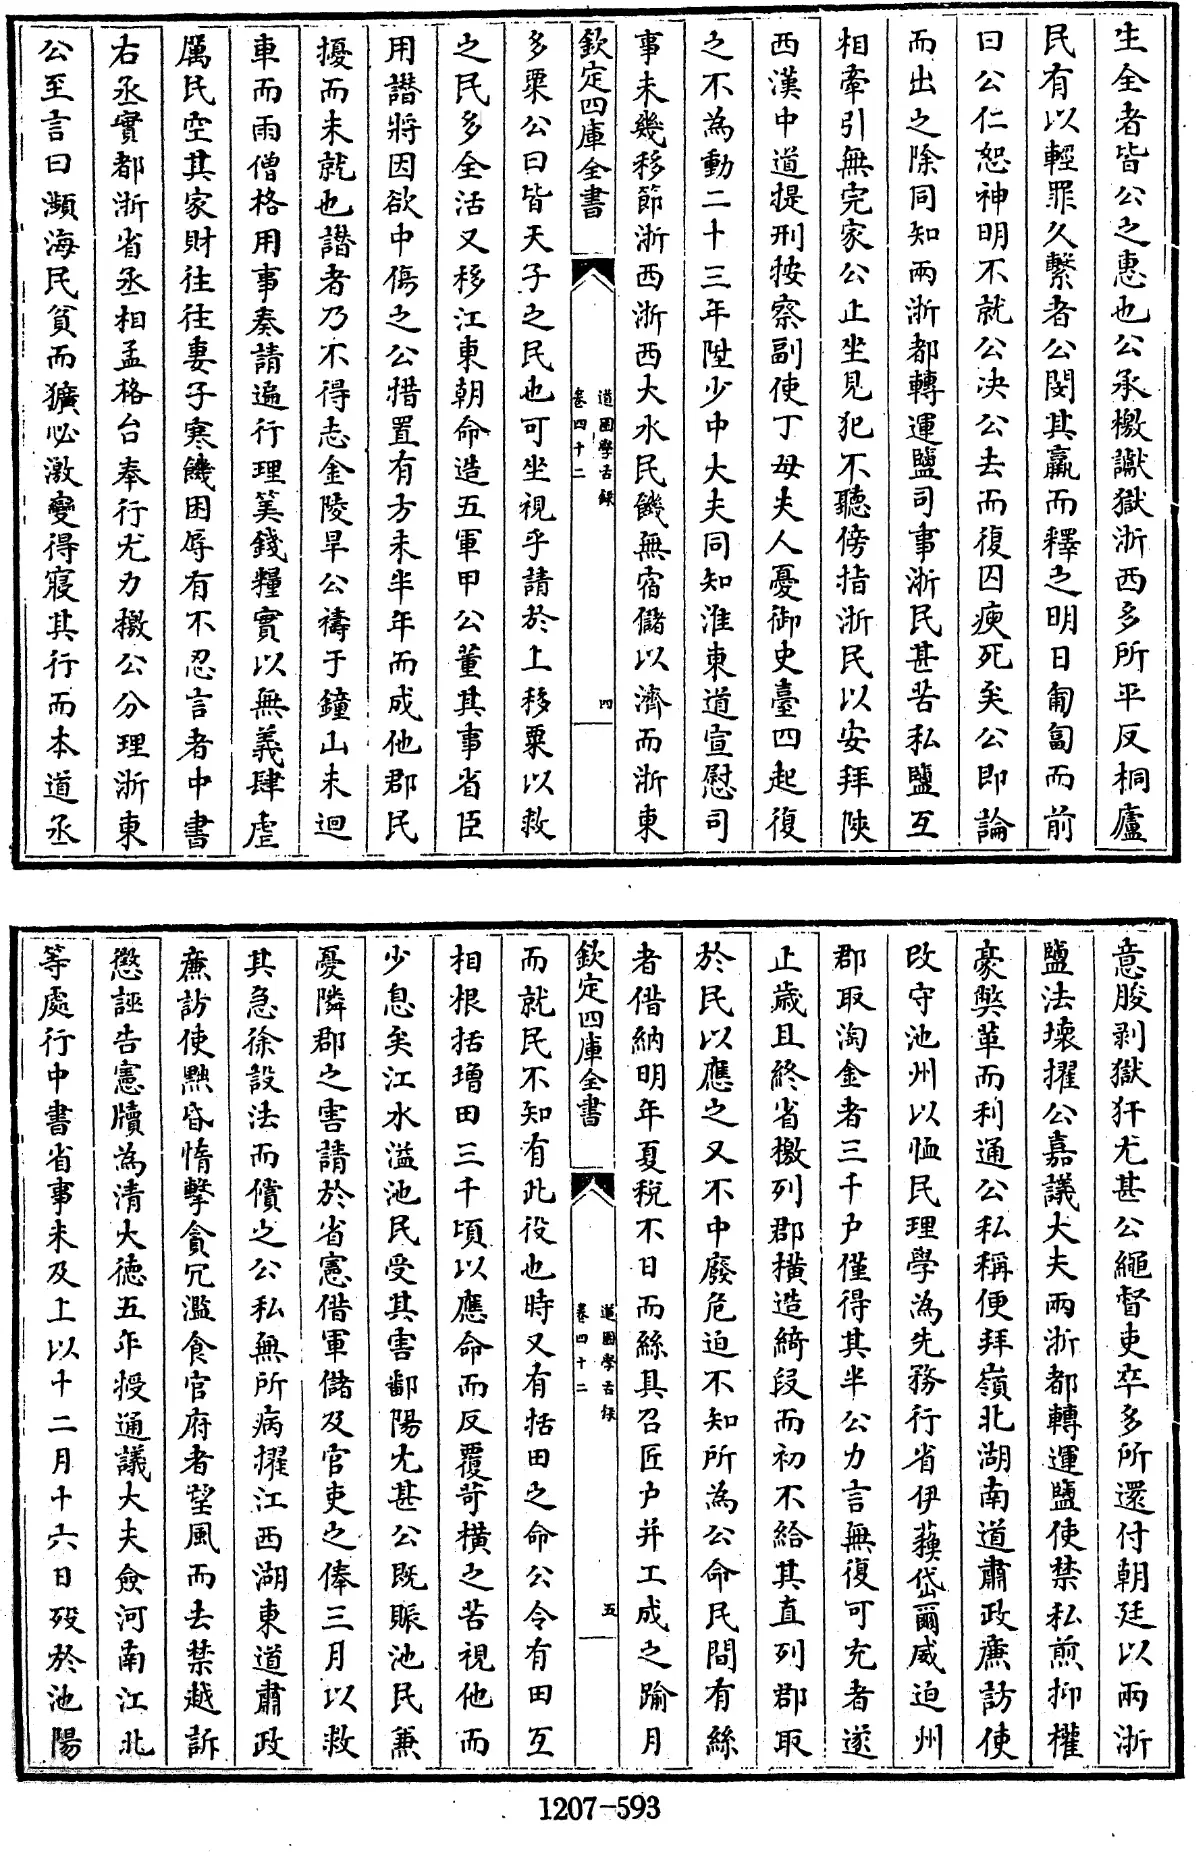 生全者皆公之惠也公承檄讞獄浙西多所平反桐廬
民有以輕罪久繫者公閔其羸而釋之明日匍匐而前
曰公仁恕神明不就公決公去而復囚瘐死矣公即論
而出之除同知兩浙都轉運鹽司事浙民甚苦私鹽互
相牽引無完家公止坐見犯不聽傍指浙民以安拜陜
西漢中道提刑按察副使丁母夫人憂御史臺四起復
之不為動二十三年陞少中大夫同知淮東道宣慰司
事未幾移節浙西浙西大水民饑無宿儲以濟而浙東
欽定四庫全書
道園學古録
卷四十二
四
多粟公曰皆天子之民也可坐視乎請於上移粟以救
之民多全活又移江東朝命造五軍甲公董其事省臣
用譛將因欲中傷之公措置有方未半年而成他郡民
擾而未就也譛者乃不得志金陵旱公禱于鐘山未迴
車而雨僧格用事奏請遍行理筭錢糧實以無義肆虐
厲民空其家財往往妻子寒饑困辱有不忍言者中書
右丞實都浙省丞相孟格台奉行尤力檄公分理浙東
公至言曰瀕海民貧而獷必激變得寢其行而本道丞
意朘剥獄犴尤甚公繩督吏卒多所還付朝廷以兩浙
鹽法壞擢公嘉議大夫兩浙都轉運鹽使禁私煎抑權
豪弊革而利通公私稱便拜嶺北湖南道肅政亷訪使
改守池州以恤民理學為先務行省伊蘓岱爾威迫州
郡取淘金者三千户僅得其半公力言無復可充者遂
止歲且終省檄列郡横造綺段而初不給其直列郡取
於民以應之又不中廢危迫不知所為公命民間有絲
者借納明年夏税不日而絲具召匠户并工成之踰月
欽定四庫全書
道園學古録
卷四十二
五
而就民不知有此役也時又有括田之命公令有田互
相根括増田三千頃以應命而反覆苛横之苦視他而
少息矣江水溢池民受其害鄱陽尤甚公既賑池民兼
憂隣郡之害請於省憲借軍儲及官吏之俸三月以救
其急徐設法而償之公私無所病擢江西湖東道肅政
亷訪使黜昏惰擊貪冗濫食官府者望風而去禁越訴
懲誣告憲牘為清大徳五年授通議大夫僉河南江北
等處行中書省事未及上以十二月十六日殁於池陽
1207-593